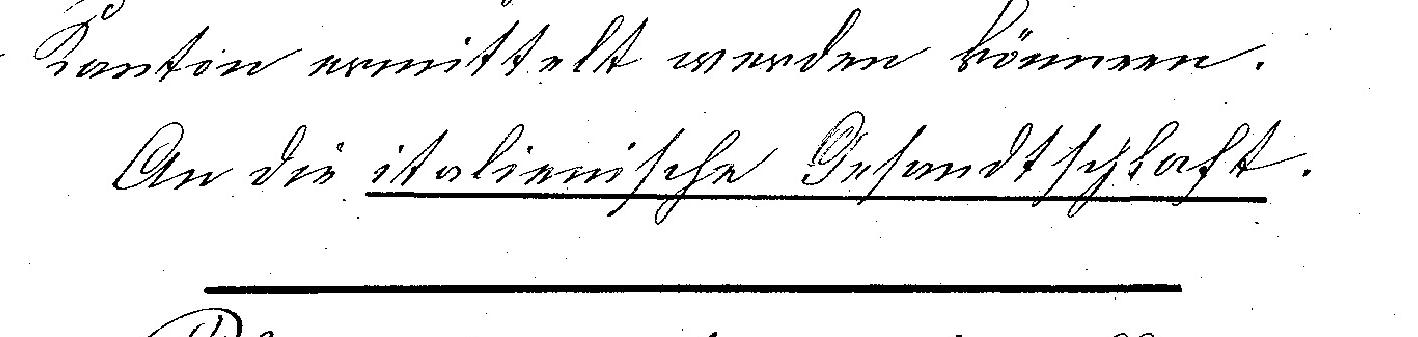 Kanton ermittelt werden können.
An die italienische Gesandtschaft.